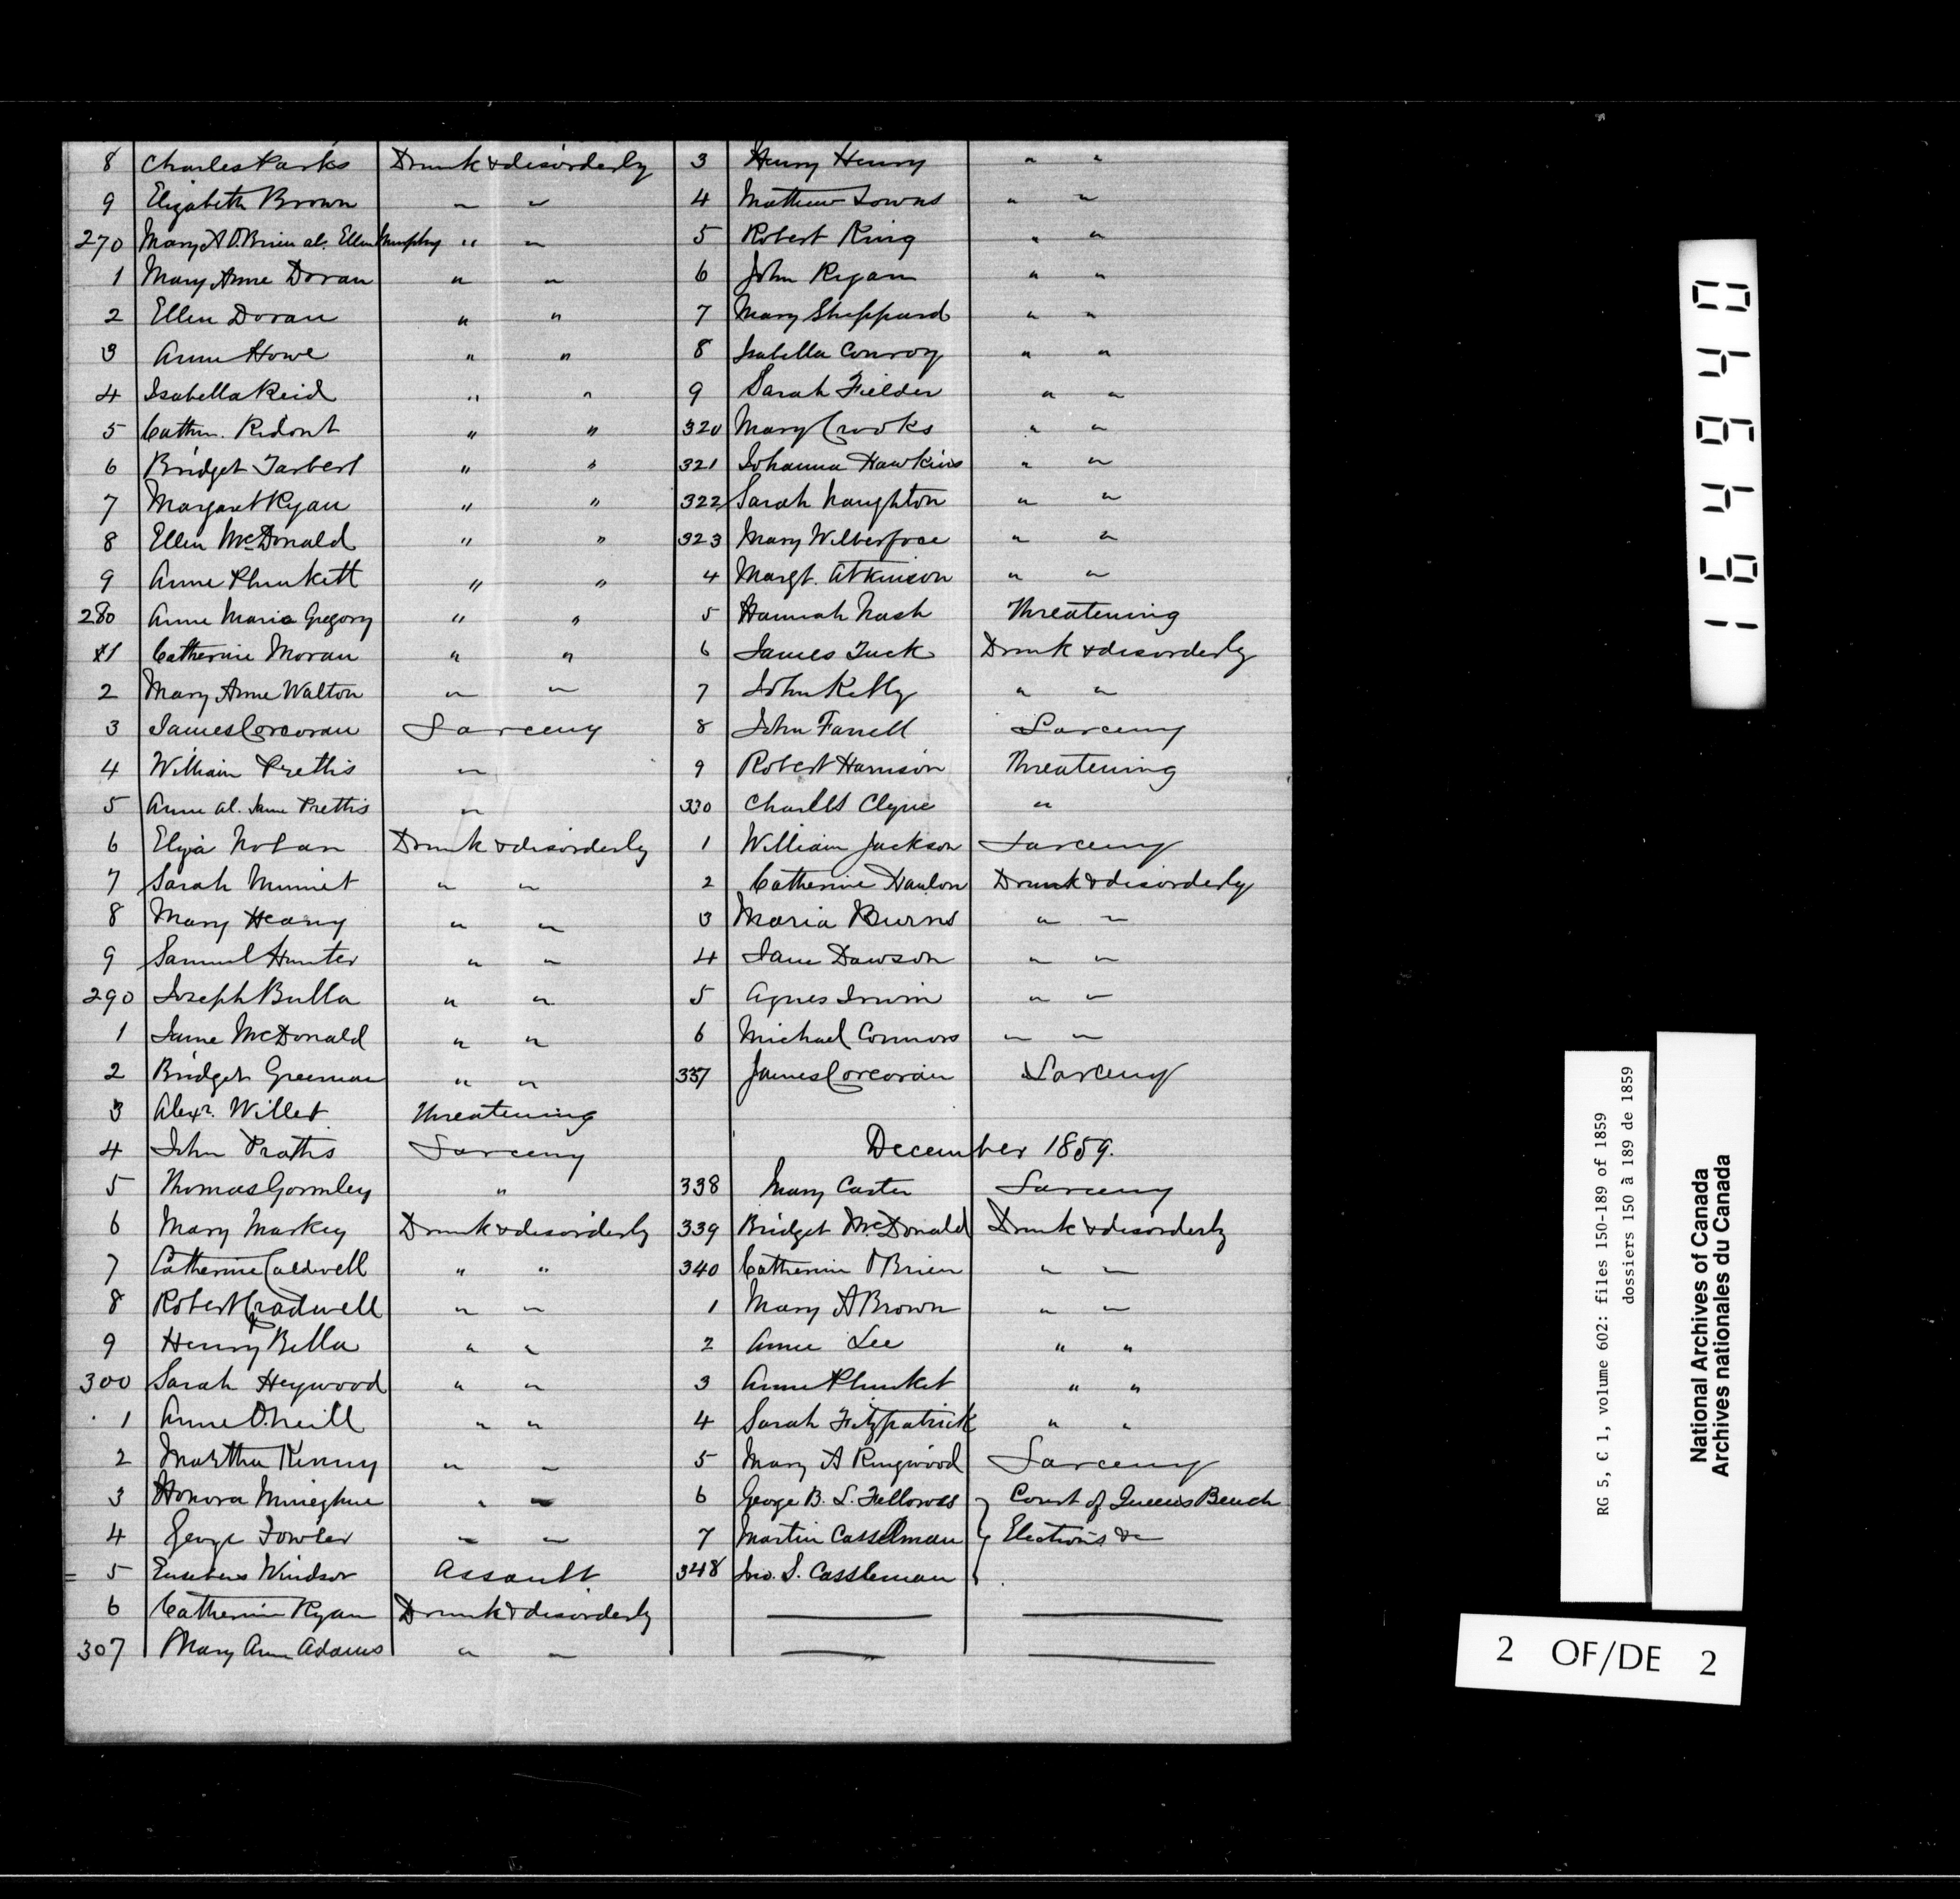 8 Charles Parks Drunk & disorderly
9 Elizabeth Brown " "
270 Mary A O'Brien al. Ellen Murphy " "
1 Mary Anne Doran " "
2 Ellen Doran " "
3 Anne Howe " "
4 Isabella Reid " "
5 Cathn. Ridout " "
6 Bridget Tarbert " "
7 Margaret Ryan " "
8 Ellen McDonald " "
9 Anne Plunkett " "
280 Anne Maria Gregory " "
1 Catherine Moran " "
2 Mary Anne Walton " "
3 James Corcoran Larceny
4 William Prettis "
5 Anne al. Jane Prettis "
6 Eliza Nolan Drunk & disorderly
7 Sarah " "
8 Mary Heany " "
9 Samuel Hunter " "
290 Joseph Bulla " "
1 Jane McDonald " "
2 Bridget Greenan " "
3 Alexr. Willet Threatening
4 John Prattis Larceny
5 Thomas Gormley "
6 Mary Markey Drunk & disorderly
7 Catherine Caldwell " "
8 Robert Cradwell " "
9 Henry Bella " "
300 Sarah Heywood " "
1 Anne O'Neill " "
2 Martha Kenny " "
3 Honora " "
4 George Fowler " "
5 Eusebius Windsor Assault
6 Catherine Ryan Drunk & disorderly
307 Mary Ann Adams " "
3 Henry Henry " "
4 Mathew Towns " "
5 Robert King " "
6 John Ryan " "
7 Mary Sheppard " "
8 Isabella Conroy " "
9 Sarah Fielder " "
320 Mary Crooks " "
321 Johanna Hawkins " "
322 Sarah Naughton " "
323 Mary Wilberforce " "
4 Margt. Atkinson " "
5 Hannah Nash Threatening
6 James Tuck Drunk & disorderly
7 John Kelly " "
8 John Farrell Larceny
9 Robert Harrison Threatening
330 Charles Clyne "
1 William Jackson Larceny
2 Catherine Hanlon Drunk & disorderly
3 Maria Burns " "
4 Jane Dawson " "
5 Agnes Irwin " "
6 Michael Connors " "
337 James Corcoran Larceny
December 1859.
338 Mary Carter Larceny
339 Bridget McDonald Drunk & disorderly
340 Catherine O'Brien " "
1 Mary A Brown " "
2 Anne Lee " "
3 Anne Plunket " "
4 Sarah Fitzpatrick " "
5 Mary A Ringwood Larceny
6 George B. L. Fellowes Court of Queen's Bench
7 Martin Casselman Elections &c
348 Jno. S. Cassleman
134640
RG 5, C 1, volume 602: files 150-189 of 1859
dossiers 150 à 189 de 1859
National Archives of Canada
Archives nationales du Canada
2 OF/DE 2